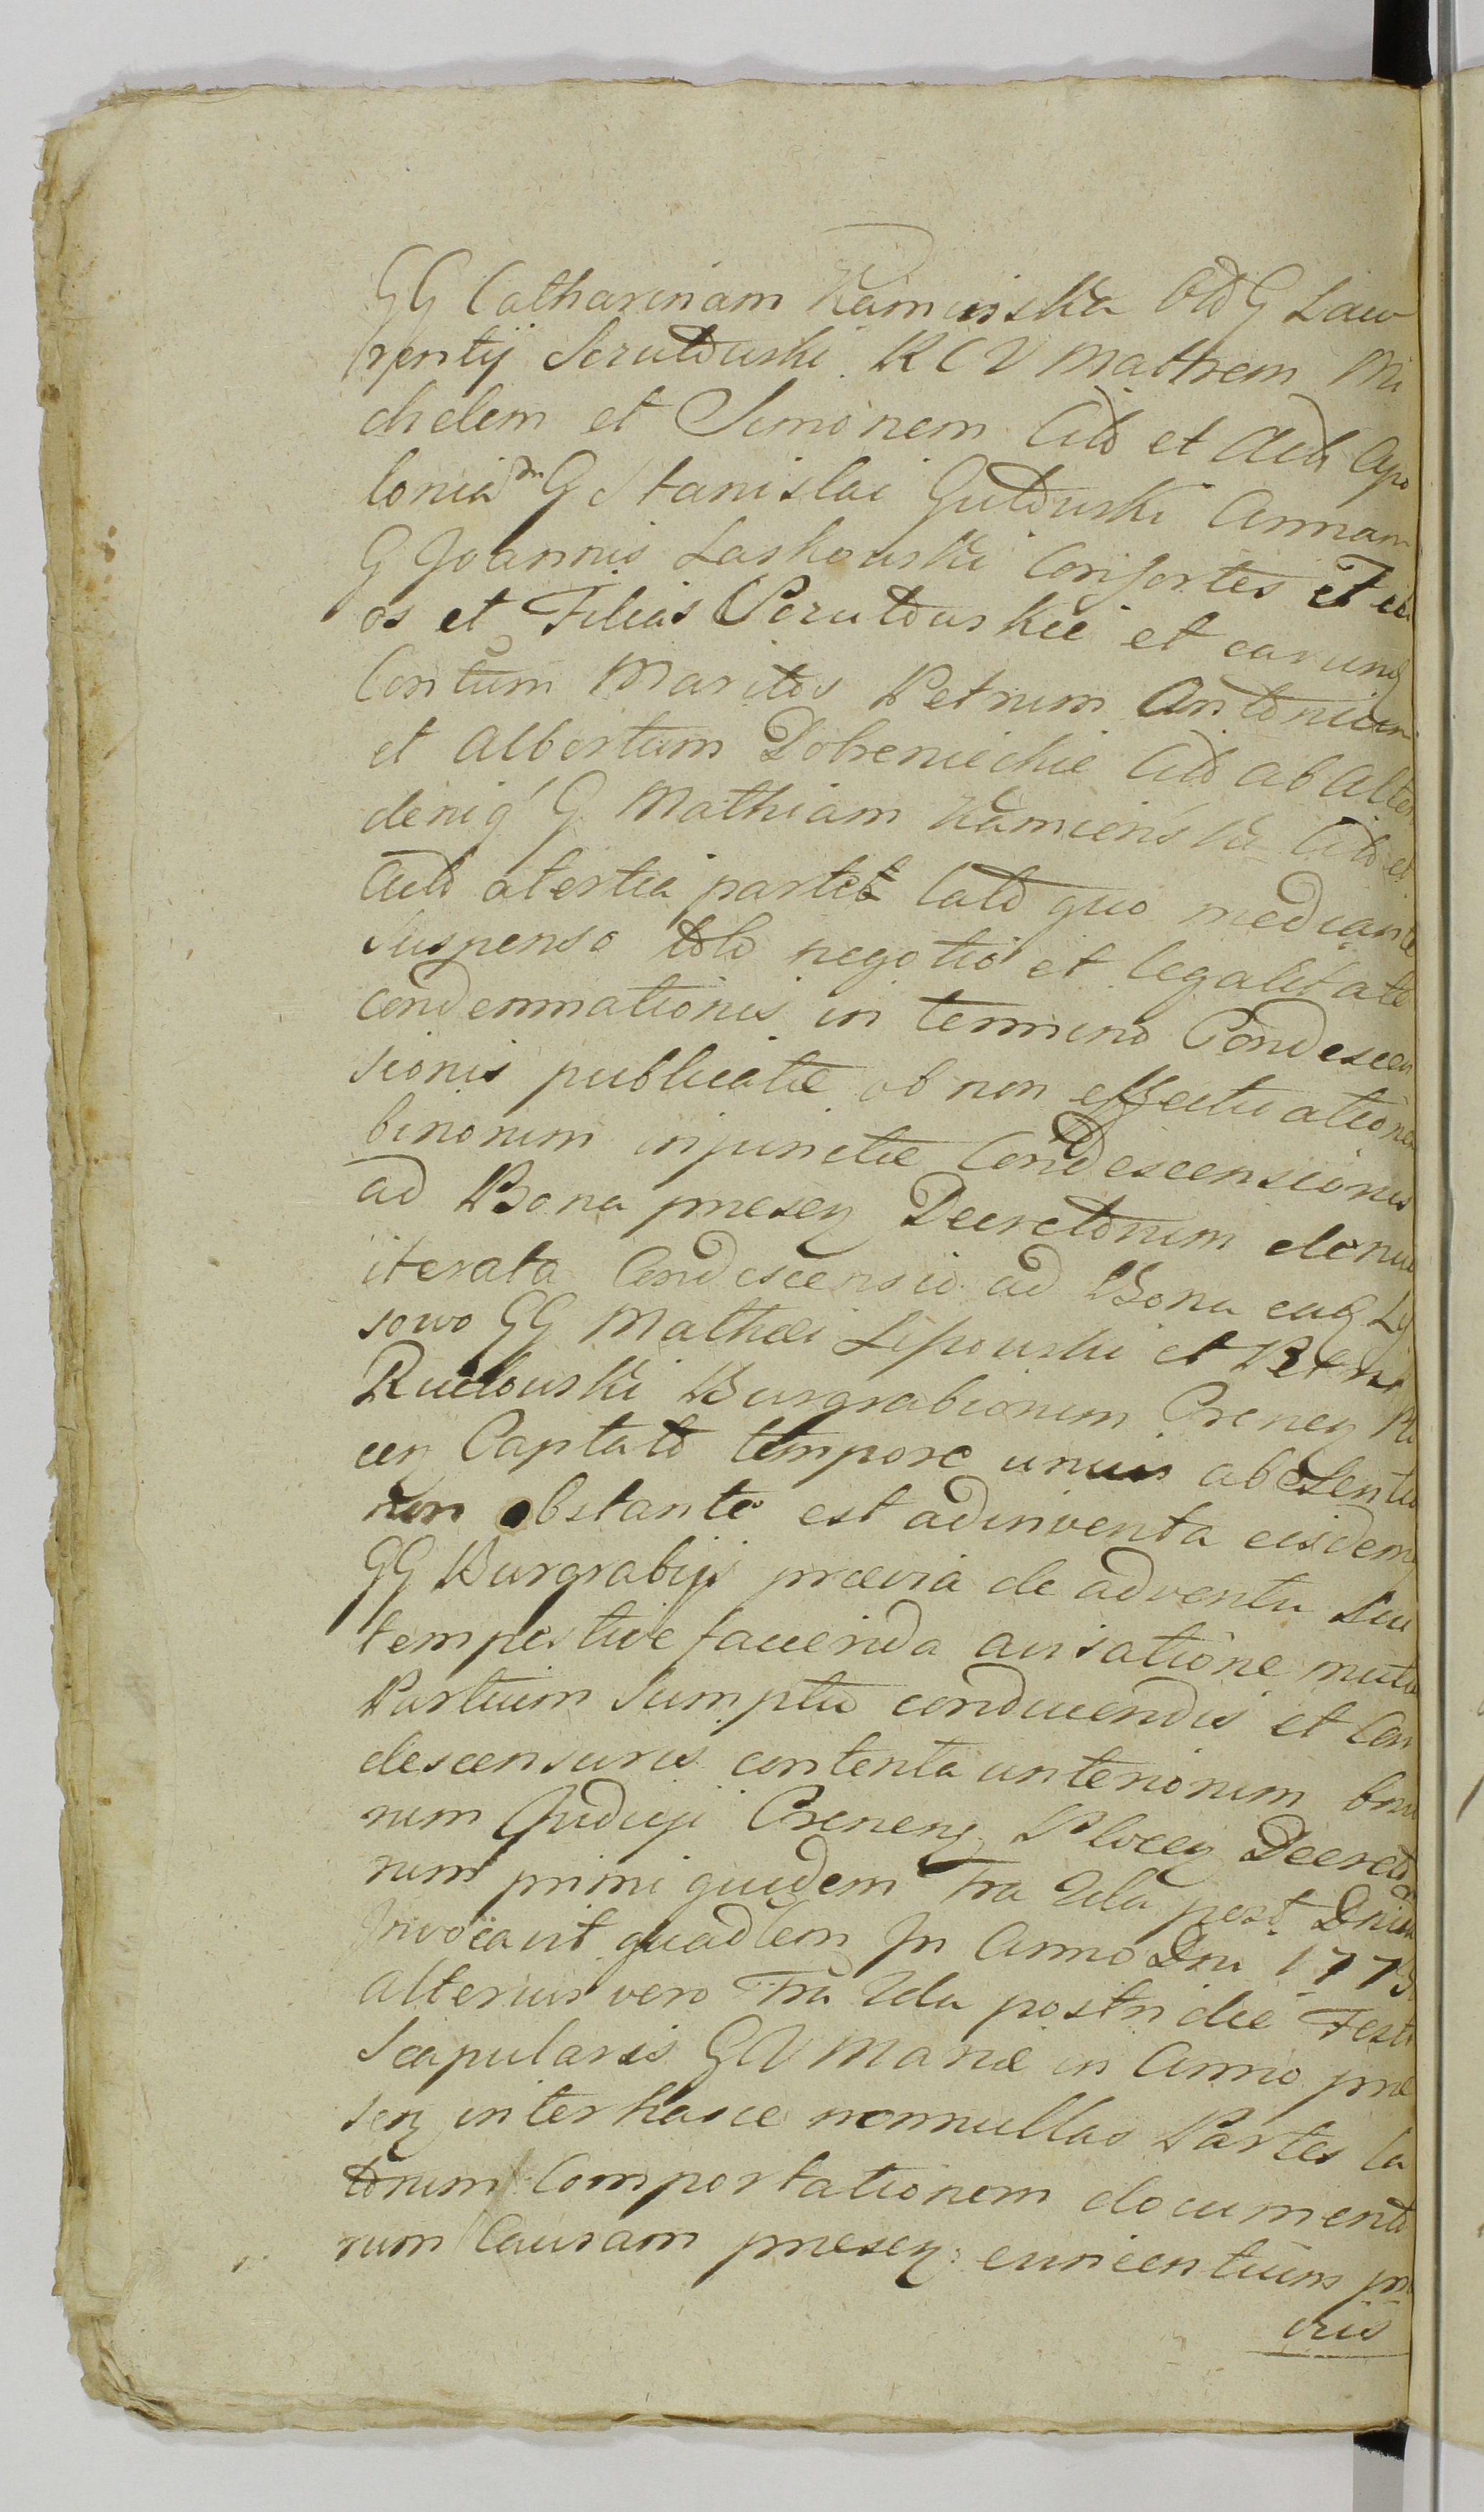 GG Catharinam Kaminska Old G Law
rentij Szcutowski RCV Matrem Mi
chelem et Simonem Citt et Actt Apo
lonia G Stanislai Gutowski Annam
G Joannis Laskowski Consortes Fili
os et Filias Szcutowskie et earund
Contum Maritos Petrum Antonium
et Albertum Dobreniechie Citt ab Alter
deniq G Mathiam Kamienski Citt et
Actt a tertia partib latto quo mediante
suspenso toto negotio et legalitate
condemnationis in termino Condescen
sionis publicatæ ob non effectuationem
binorum injunctæ Condescensionis
ad Bona præsen Decretorum denuo
iterata Condescensio ad Bona eaq Ly
sowo GG Mathæi Lipowski et
Rudowski Burgrabiorum Crenen Plo
cen Captato tempore unius absentia
non obstante est adinventa eisdem
GG Burgrabijs prævia de adventu sui
tempestive facienda avisatione mutuo
Partium Sumptu conducendis et Con
descensuris contenta anteriorum bino
rum Judicij Crenen Plocen Decreto
rum primi quidem Fra 2da post Dnicam
Invocavit quadlem In Anno Dni 177
alterius vero Fra 2da postridie Festi
Scapularis GV Mariæ in Anno præ
sen inter hasce nonnullas Partes la
torum Comportationem documento
rum Causam præsen: evincentium